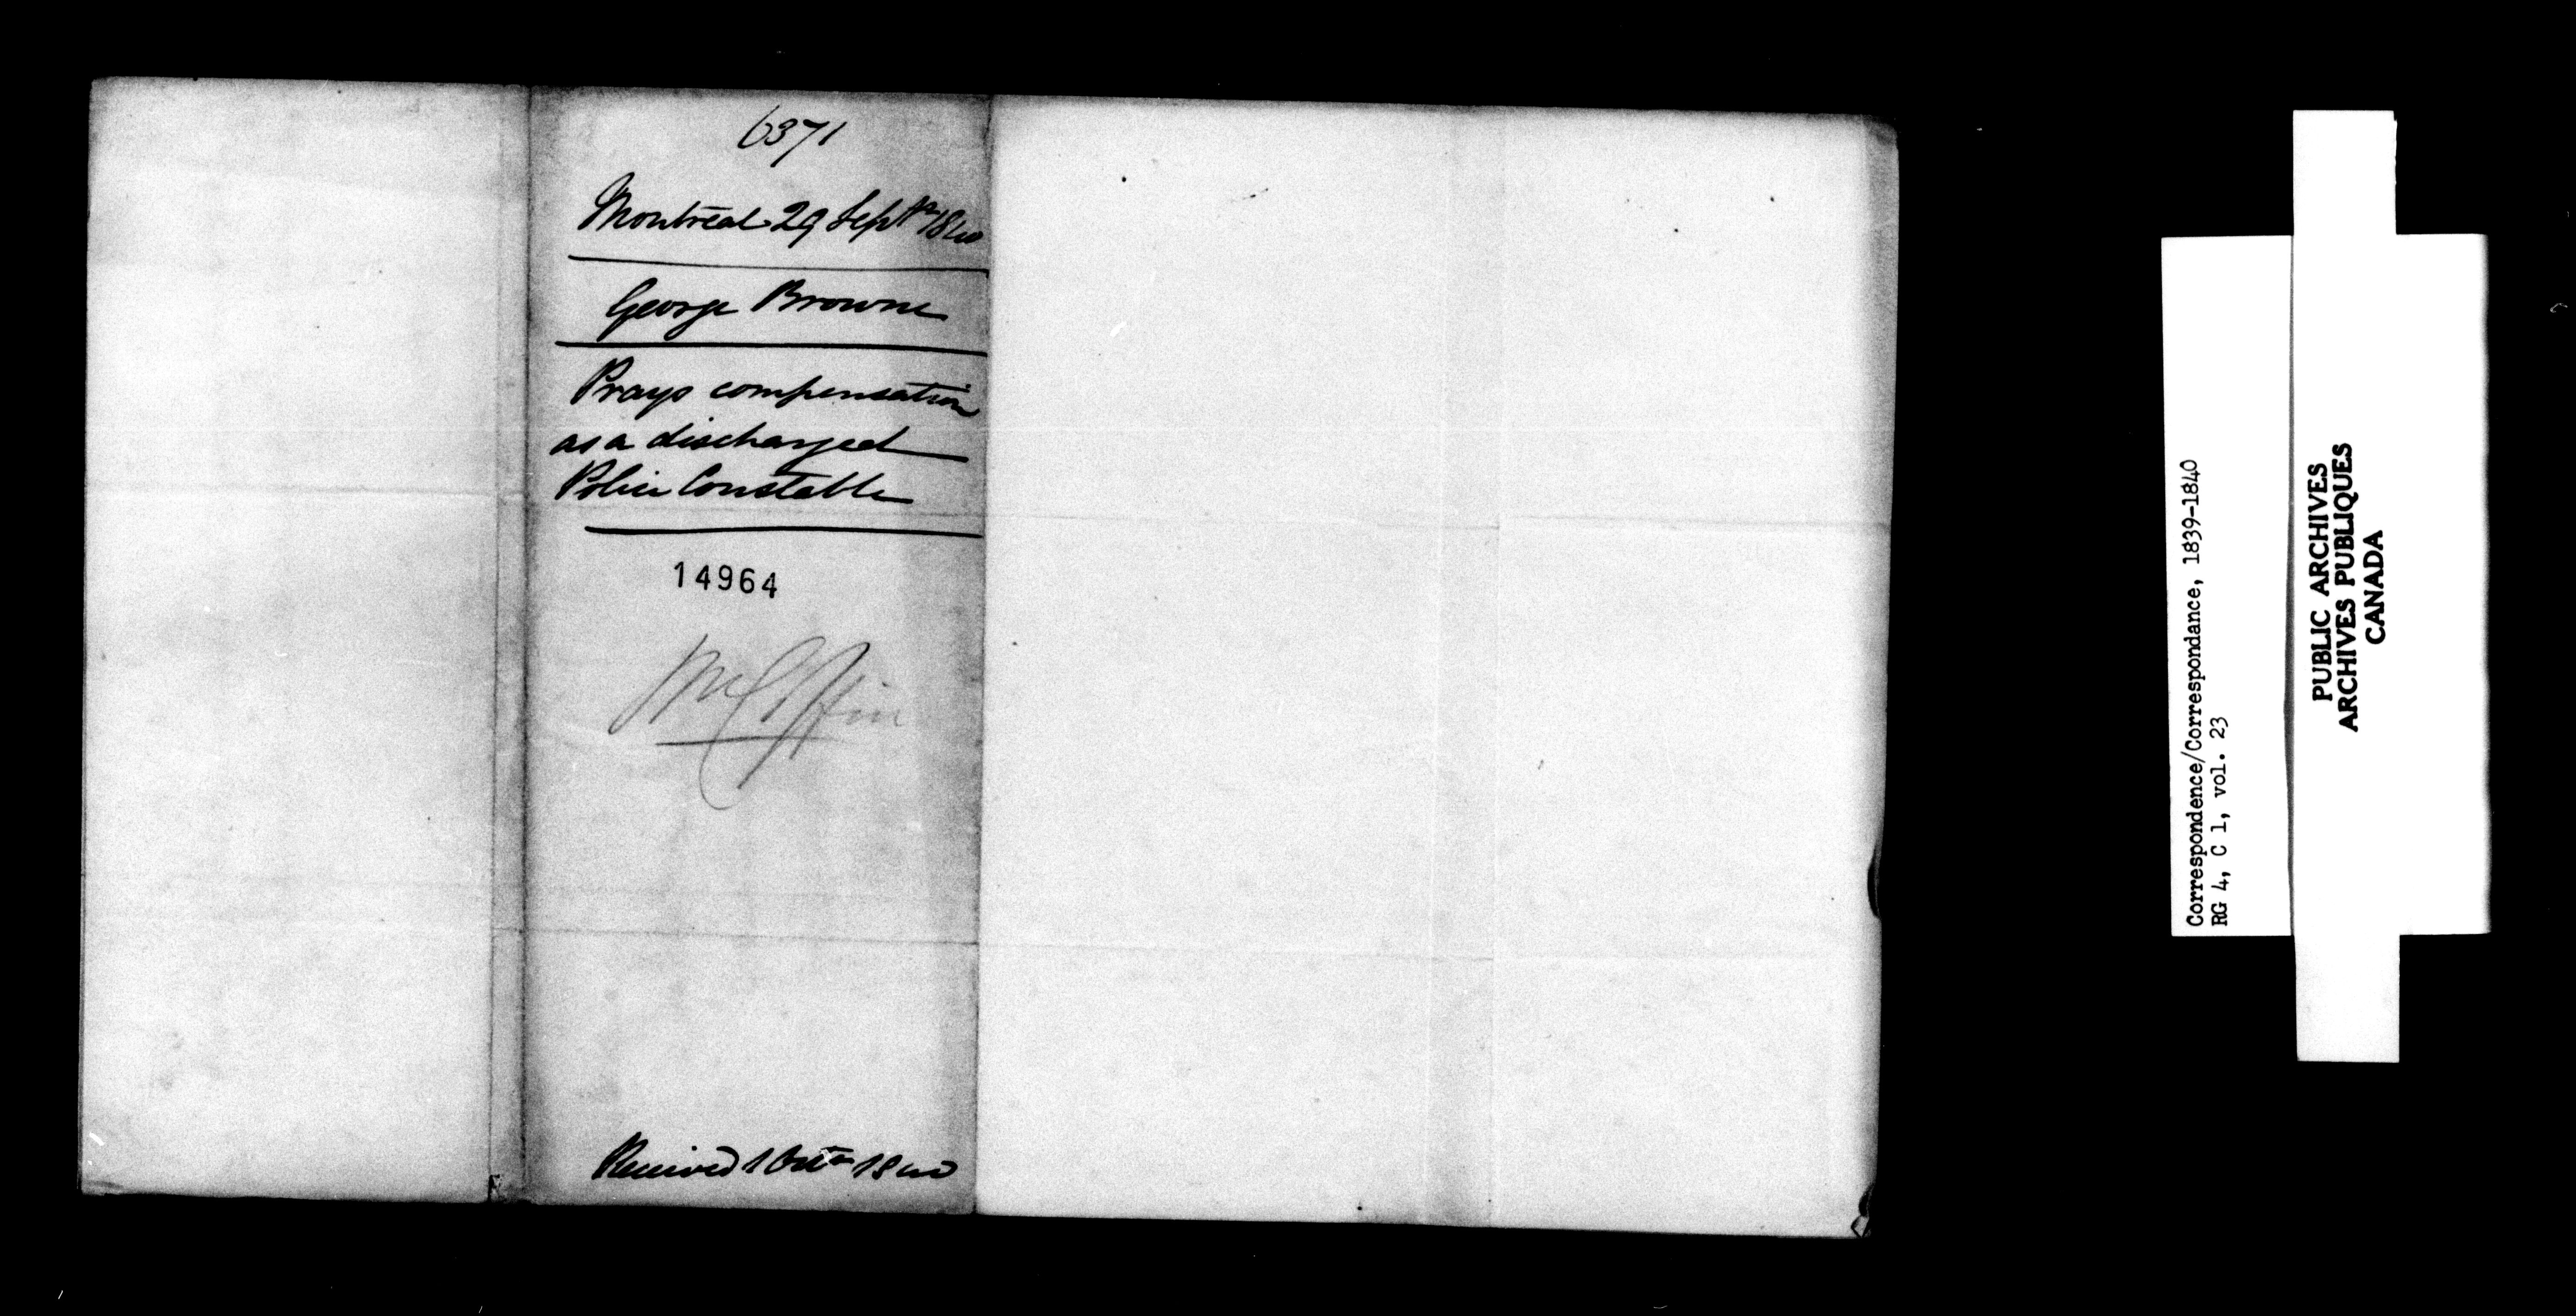 6371
Montreal 29 Septr 1840
George Browne
Prays compensation
as a discharged
Police Constable
14964
Received 1 Octr 1840
Correspondence/Correspondance, 1839-1840
RG 4, C 1, vol. 23
PUBLIC ARCHIVES
ARCHIVES PUBLIQUES
CANADA